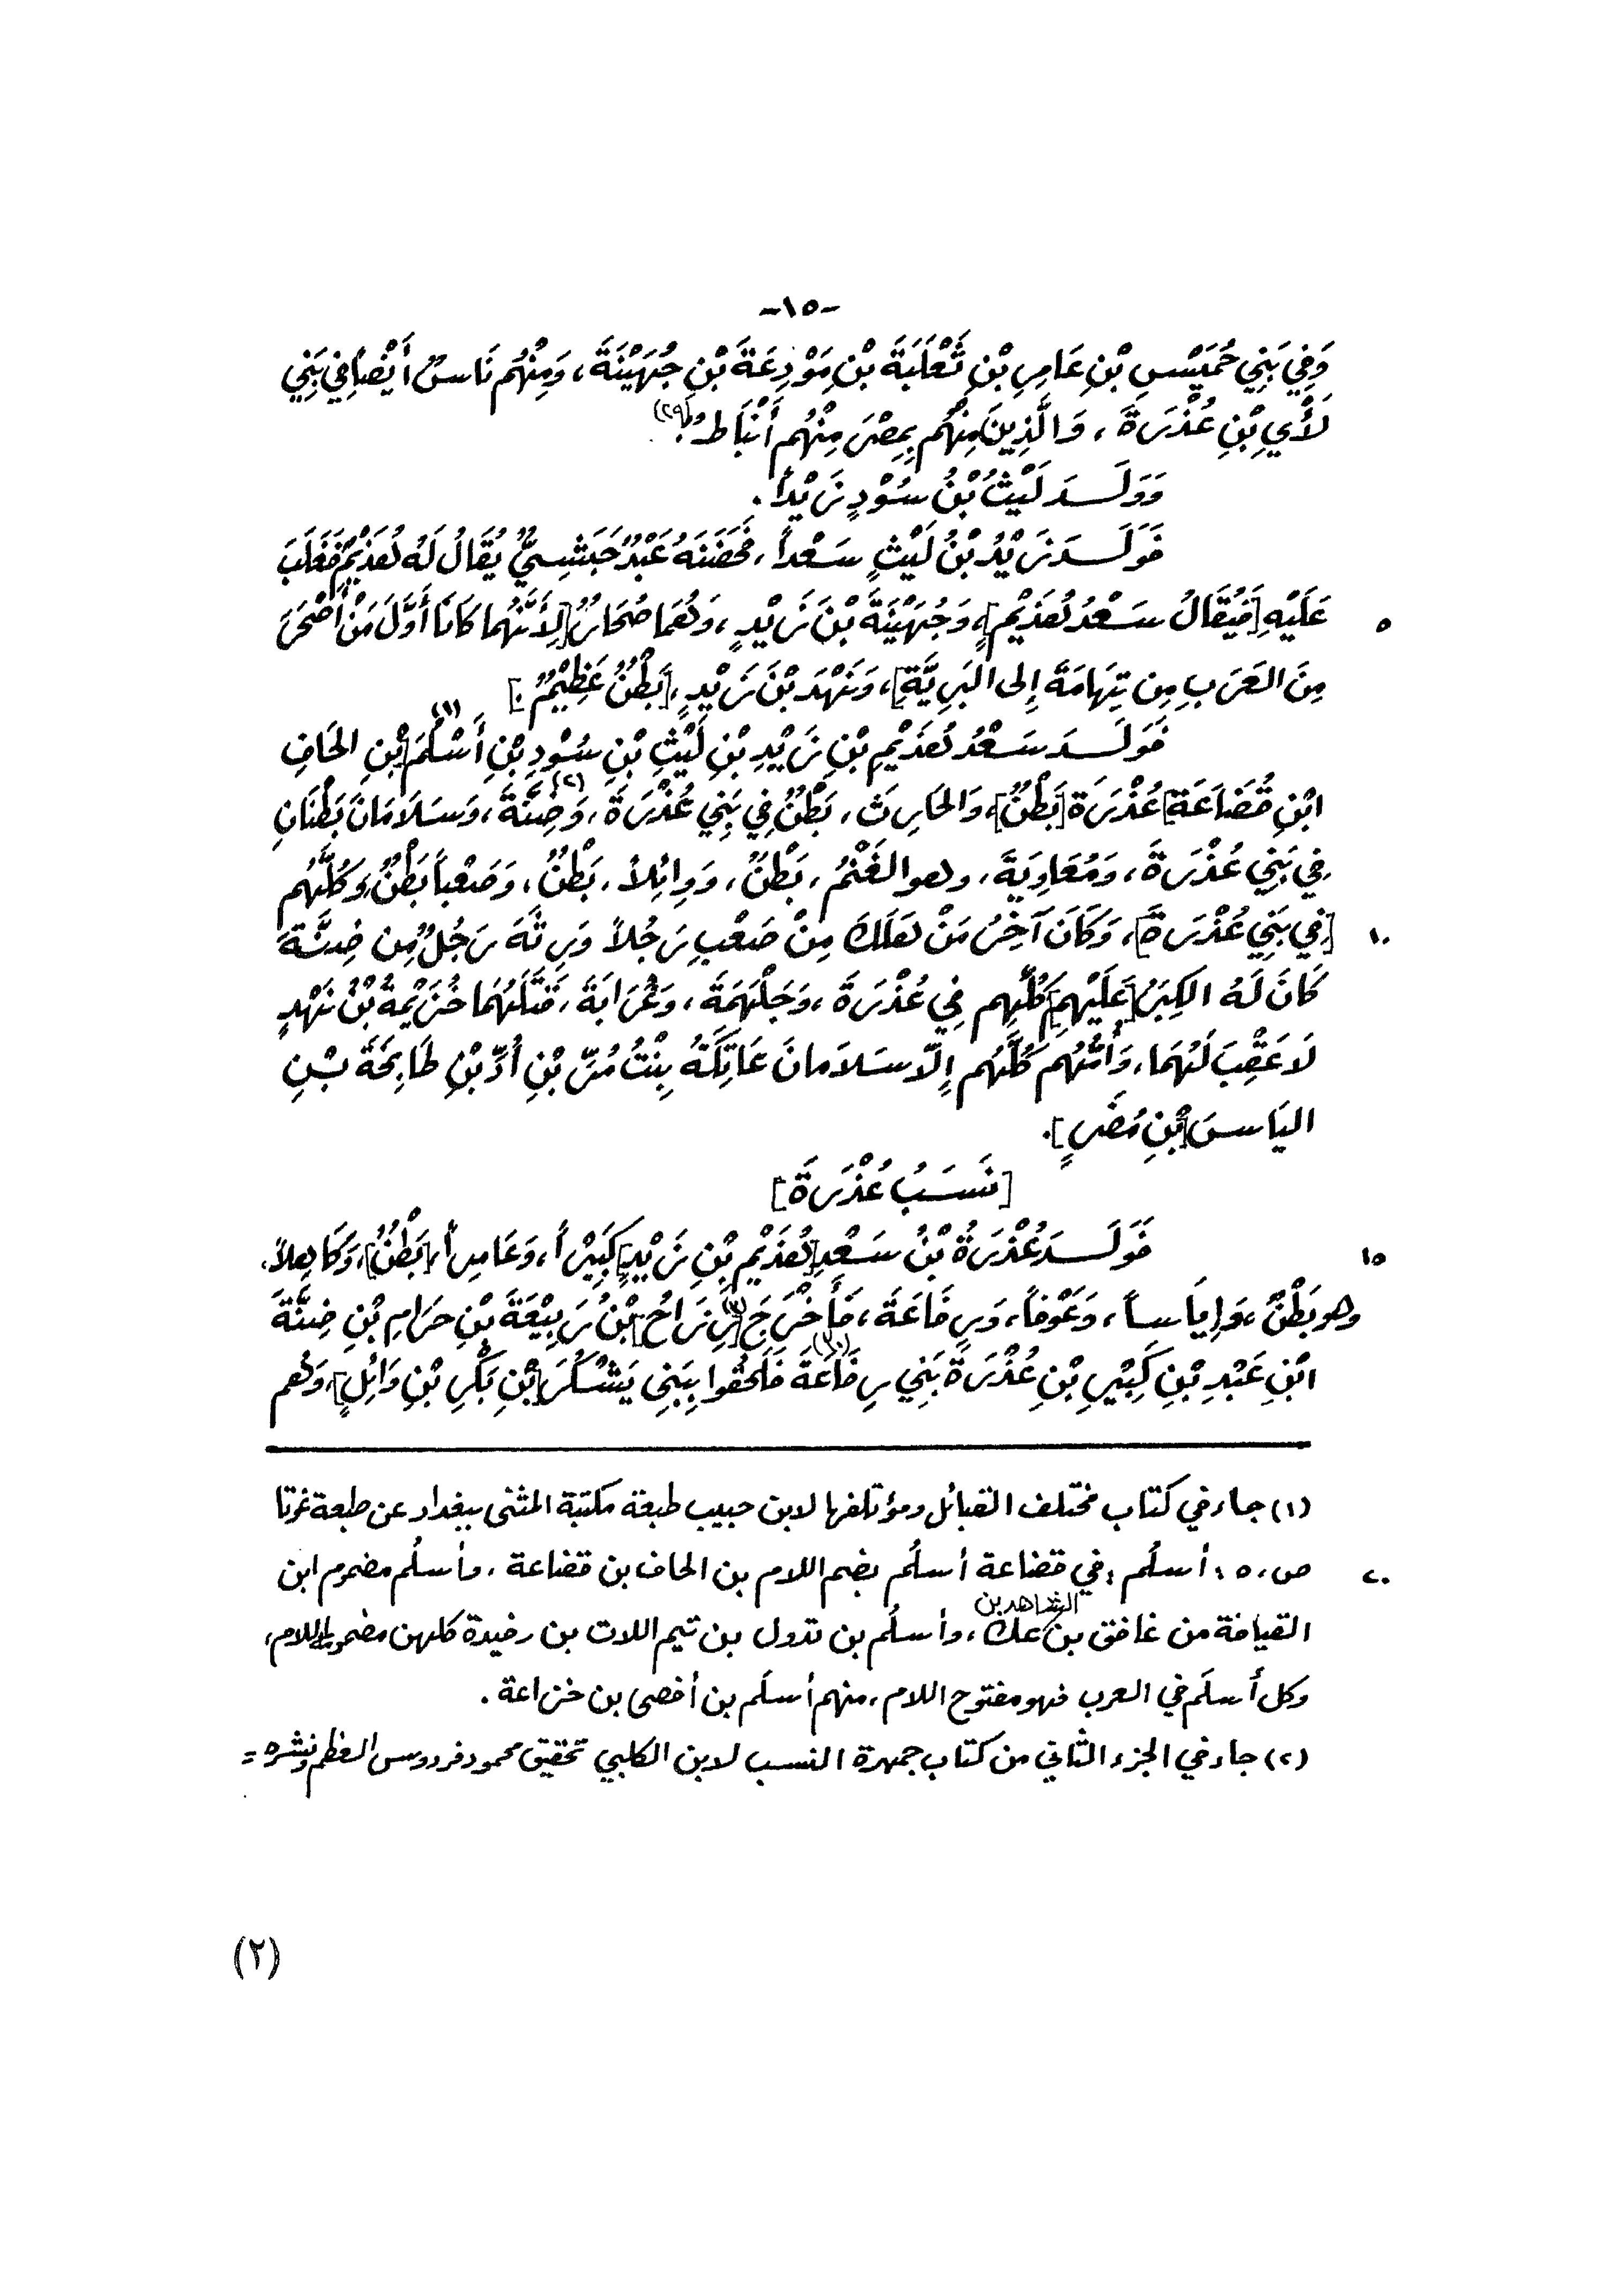 -١٥-
وَفِي بَنِي حُمَيْسِ بْنِ عَامِرِ بْنِ ثَعْلَبَةَ بْنِ مَوْدِعَةَ بْنِ جُهَيْنَةَ، وَمِنْهُم نَاسٌ أَيْضاً فِي بَنِي
لَأْيِ بْنِ عُذْرَةَ، وَالَّذِينَ مِنْهُم بِمِصْرَ مِنْهُم أَنْبَاطٌ.(٢٩)
وَوَلَدَ لَيْثُ بْنُ سُوْدٍ زَيْداً.
فَوَلَدَ زَيْدُ بْنُ لَيْثٍ سَعْداً، فَحَضَنَهُ عَبْدٌ حَبَشِيٌّ يُقَالُ لَهُ هُذَيْمٌ فَغَلَبَ
عَلَيْهِ [فَيُقَالُ سَعْدُ هُذَيْمٍ]، وَجُهَيْنَةَ بْنَ زَيْدٍ، وَهُمَا صُحَارٌ [لِأَنَّهُما كَانَا أَوَّلَ مَنْ أَصْحَرَ ٥
مِنَ العَرَبِ مِن تِهَامَةَ إِلى البَرِيَّةِ]، وَنَهْدَ بْنَ زَيْدٍ، [بَطْنٌ عَظِيْمٌ.]
فَوَلَدَ سَعْدُ هُذَيْمِ بْنِ زَيْدِ بْنِ لَيْثِ بْنِ سُوْدِ بْنِ أَسْلُمَ(١) [بْنِ الحَافِ
ابْنِ قُضَاعَةَ] عُذْرَةَ [بَطْنٌ]، وَالحَارِثَ، بَطْنٌ فِي بَنِي عُذْرَةَ، وَضِنَّةَ(٢)، وَسَلَامَانَ بَطْنَانِ
فِي بَنِي عُذْرَةَ، وَمُعَاوِيَةَ، وهو الغَنْمُ، بَطْنٌ، وَوائِلاً، بَطْنٌ، وَصَعْباً بَطْنٌ، وَكُلُّهُم
[فِي بَنِي عُذْرَةَ]، وَكَانَ آخِرُ مَنْ هَلَكَ مِنْ صَعْبٍ رَجُلاً وَرِثَهُ رَجُلٌ مِن ضِنَّةَ ١٠
كَانَ لَهُ الكِبَرُ [عَلَيْهِم] كُلِّهِم فِي عُذْرَةَ، وَجَلْهَمَةَ، وَغُرَابَةَ، قَتَلَهُمَا خُزَيْمَةُ بْنُ نَهْدٍ
لَا عَقِبَ لَهُمَا، وَأُمُّهُم كُلُّهُم إِلّا سَلَامانَ عَاتِكَةُ بِنْتُ مُرِّ بْنِ أُدِّ بْنِ طَابِخَةَ بْنِ
اليَاسَ [بْنِ مُضَرٍ].
[نَسَبُ عُذْرَةَ]
فَوَلَدَ عُذْرَةُ بْنُ سَعْدِ [هُذَيْمِ بْنِ زَيْدٍ] كَبِيْراً، وَعَامِراً، [بَطْنٌ]، وَكَاهِلاً، ١٥
وهو بَطْنٌ، وَإِيَاساً، وَعَوْفاً، وَرِفَاعَةَ، فَأَخْرَجَ(٣) [رِزَاحُ] بْنُ رَبِيْعَةَ بْنِ حَرَامِ بْنِ ضِنَّةَ
ابْنِ عَبْدِ بْنِ كَبِيْرِ بْنِ عُذْرَةَ بَنِي رِفَاعَةَ(٣٠) فَلَحِقُوا بِبَنِي يَشْكُرَ [بْنِ بَكْرِ بْنِ وَائِلٍ]، وَهُم
(١) جاء في كتاب مختلف القبائل ومؤتلفها لابن حبيب طبعة مكتبة المثنى ببغداد عن طبعة غوتا
ص، ٥: أسلُم: في قضاعة أسلُم بضم اللام بن الحاف بن قضاعة، وأسلُم مضموم ابن ٢٠
القيافة من غافق بن الشاهد بن عك، وأسلُم بن تدول بن تيم اللات بن رفيدة كلهن مضموم اللام،
وكل أسلَم في العرب فهو مفتوح اللام، منهم أسلَم بن أفصى بن خزاعة.
(٢) جاء في الجزء الثاني من كتاب جمهرة النسب لابن الكلبي تحقيق محمود فردوس العظم ونشره =
(٢)